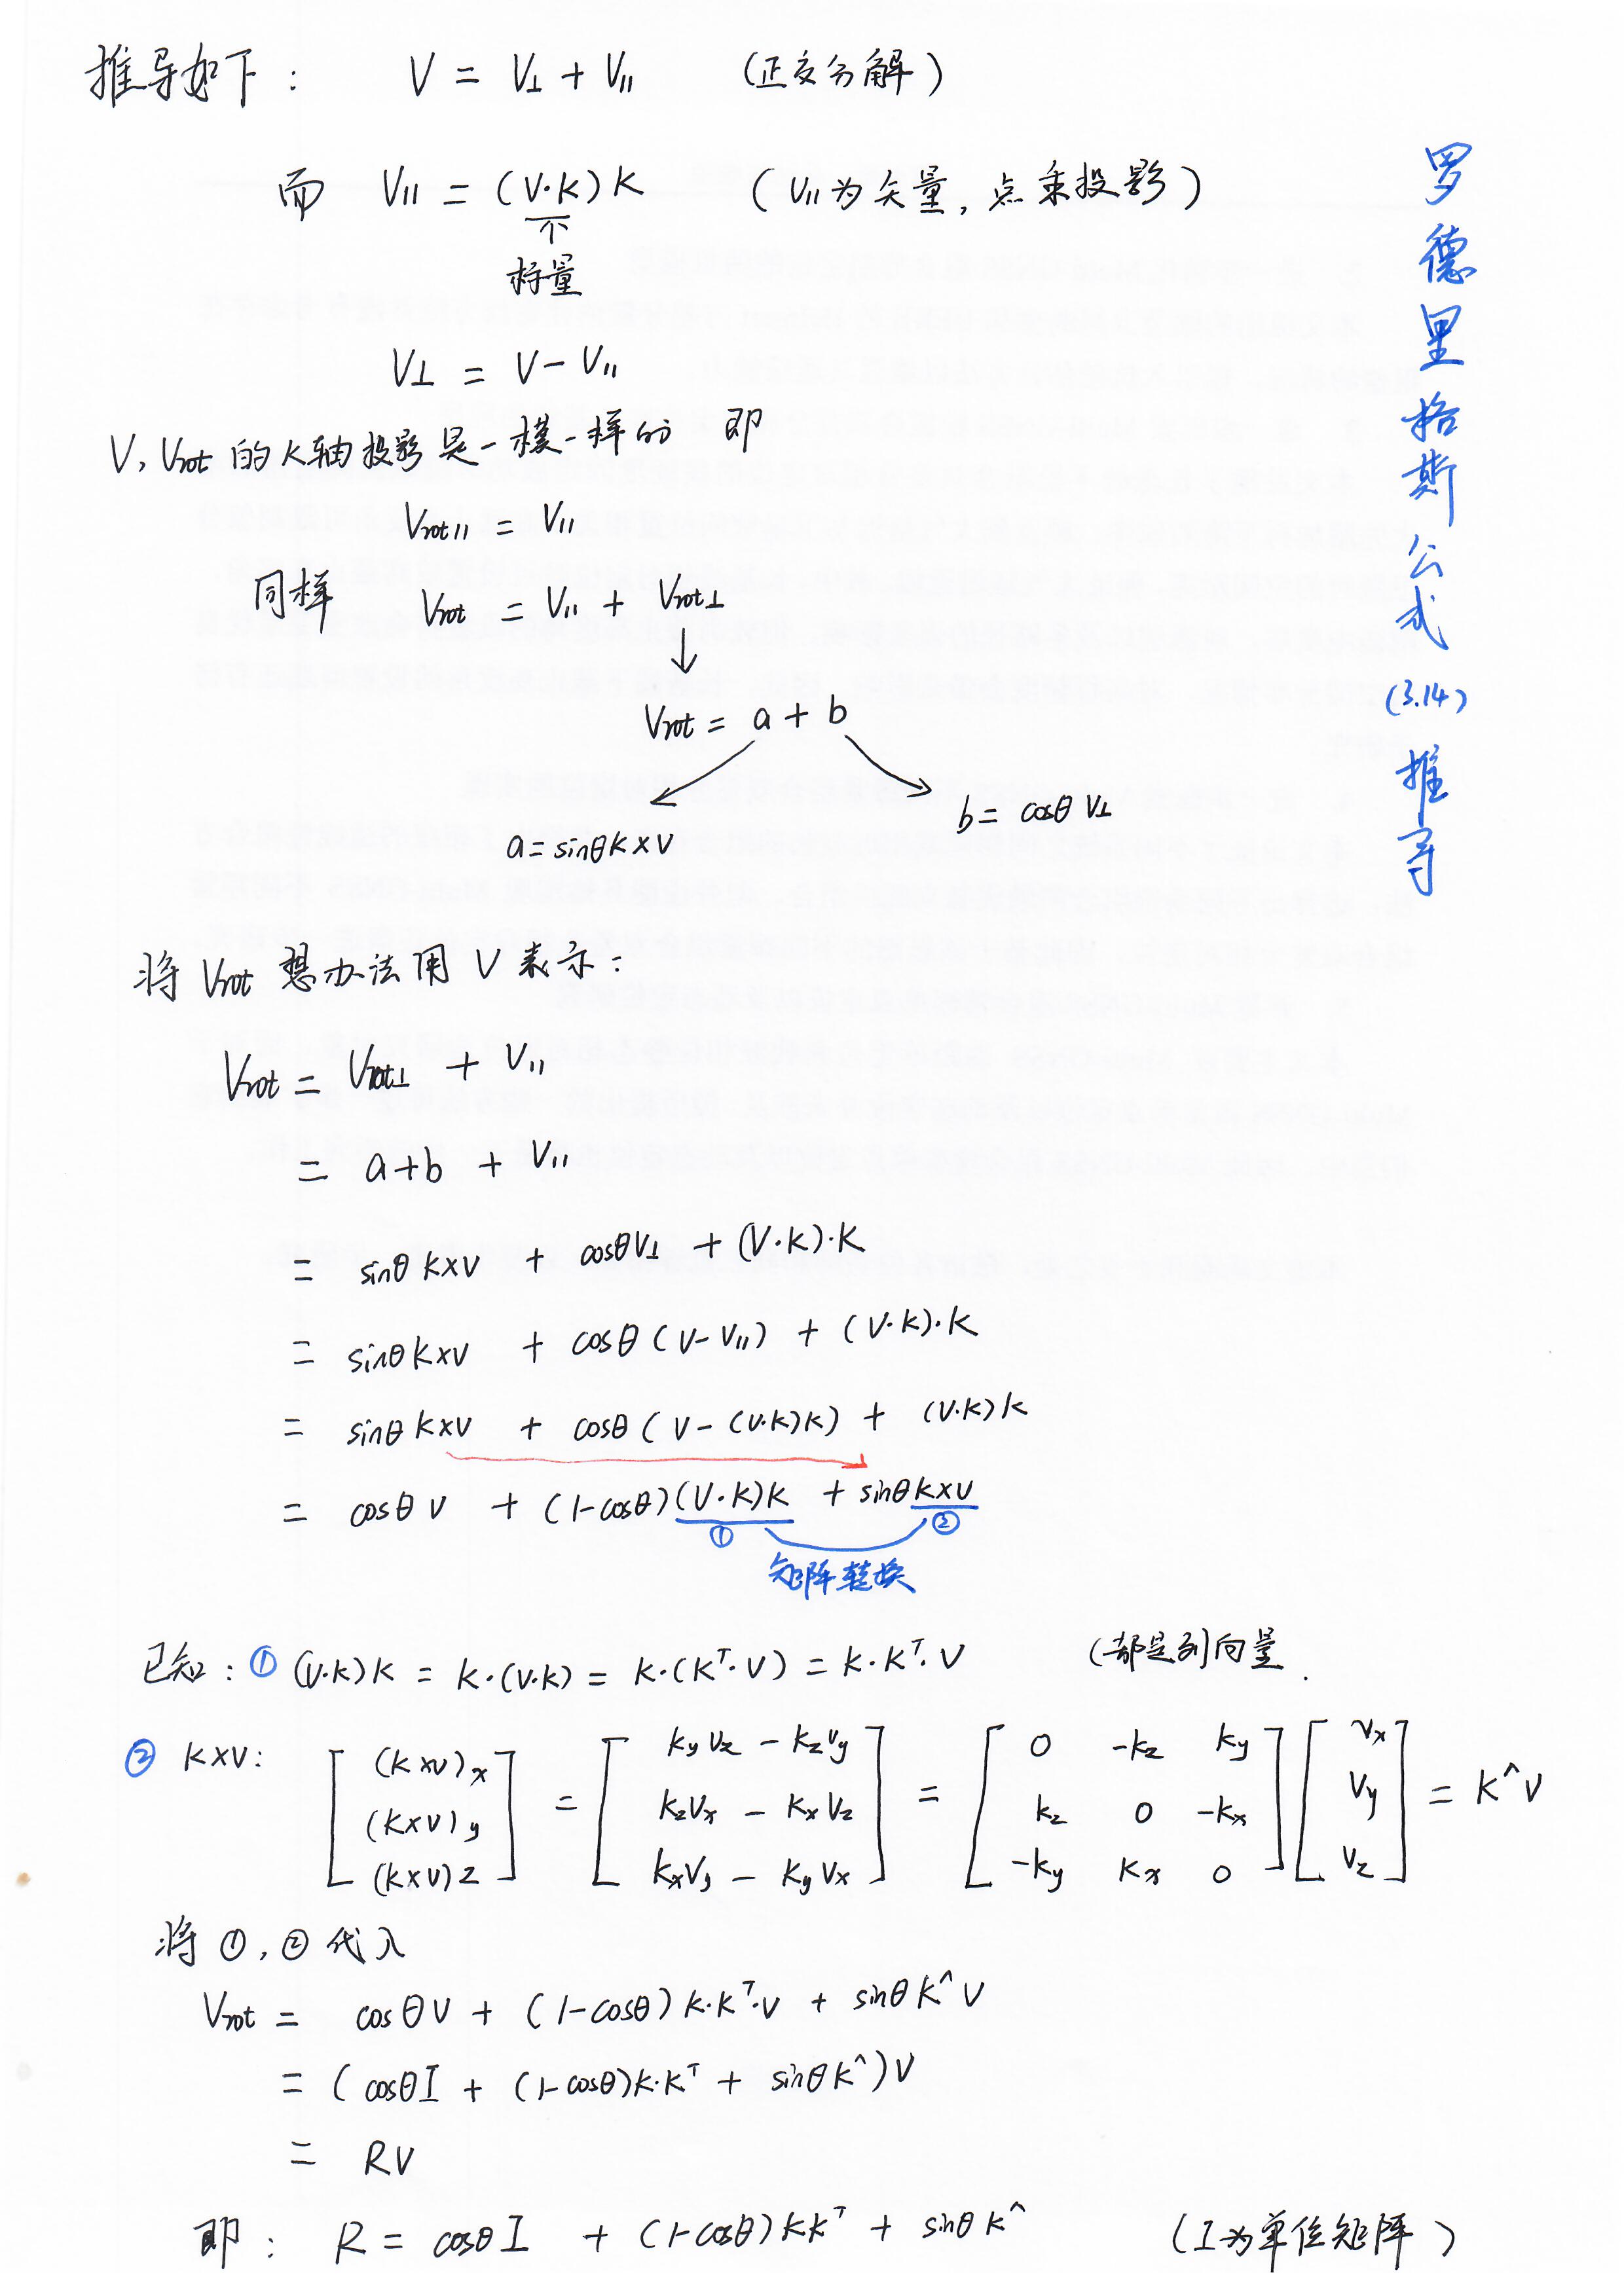 推导如下： V = V⊥ + V∥ （正交分解）
而 V∥ = (V·K)K （V∥为矢量，点乘投影）
↑
标量
V⊥ = V - V∥
V, Vrot 的K轴投影是一模一样的 即
Vrot∥ = V∥
同样 Vrot = V∥ + Vrot⊥
↓
Vrot = a + b
b = cosθ V⊥
a = sinθ K×V
将 Vrot 想办法用 V 表示：
Vrot = Vrot⊥ + V∥
= a+b + V∥
= sinθ K×V + cosθV⊥ + (V·K)·K
= sinθ K×V + cosθ (V-V∥) + (V·K)·K
= sinθ K×V + cosθ (V-(V·K)K) + (V·K)K
= cosθ V + (1-cosθ)(V·K)K + sinθ K×V
① ②
矩阵转换
已知：① (V·K)K = K·(V·K) = K·(K^T·V) = K·K^T·V （都是列向量.
② K×V: [(K×V)x (K×V)y (K×V)z] = [KyVz - KzVy KzVx - KxVz KxVy - KyVx] = [0 -Kz Ky Kz 0 -Kx -Ky Kx 0] [Vx Vy Vz] = K^V
将 ①, ② 代入
Vrot = cosθV + (1-cosθ)K·K^T·V + sinθ K^V
= (cosθI + (1-cosθ)K·K^T + sinθ K^)V
= RV
即： R = cosθ I + (1-cosθ)KK^T + sinθ K^ （I为单位矩阵）
罗德里格斯公式(3.14)推导